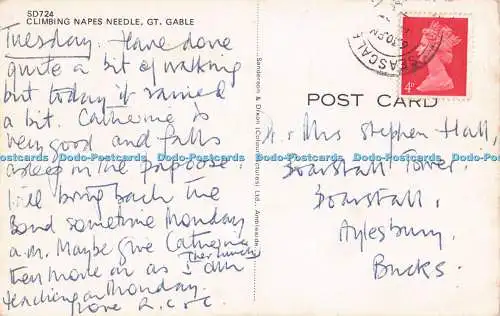 SD724
CLIMBING NAPES NEEDLE, GT. GABLE
Tuesday. Have done
quite a bit of walking
but today it rained
a bit. Catherine is
very good and falls
asleep in the papoose.
I'll bring back the
Bond sometime Monday
a.m. Maybe give Catherine
her lunch
then move on as I am
teaching on Monday.
Love R.C+C
Sanderson & Dixon (Colour Pictures) Ltd., Ambleside.
SEASCALE
6.30PM
4D
POST CARD
Dr. & Mrs Stephen Hall,
Boarstall Tower,
Boarstall,
Aylesbury,
Bucks.
Postcards Dodo-Postcards Dodo-Postcards Dodo-Postcards Dodo-Postcards Dodo-Postcards